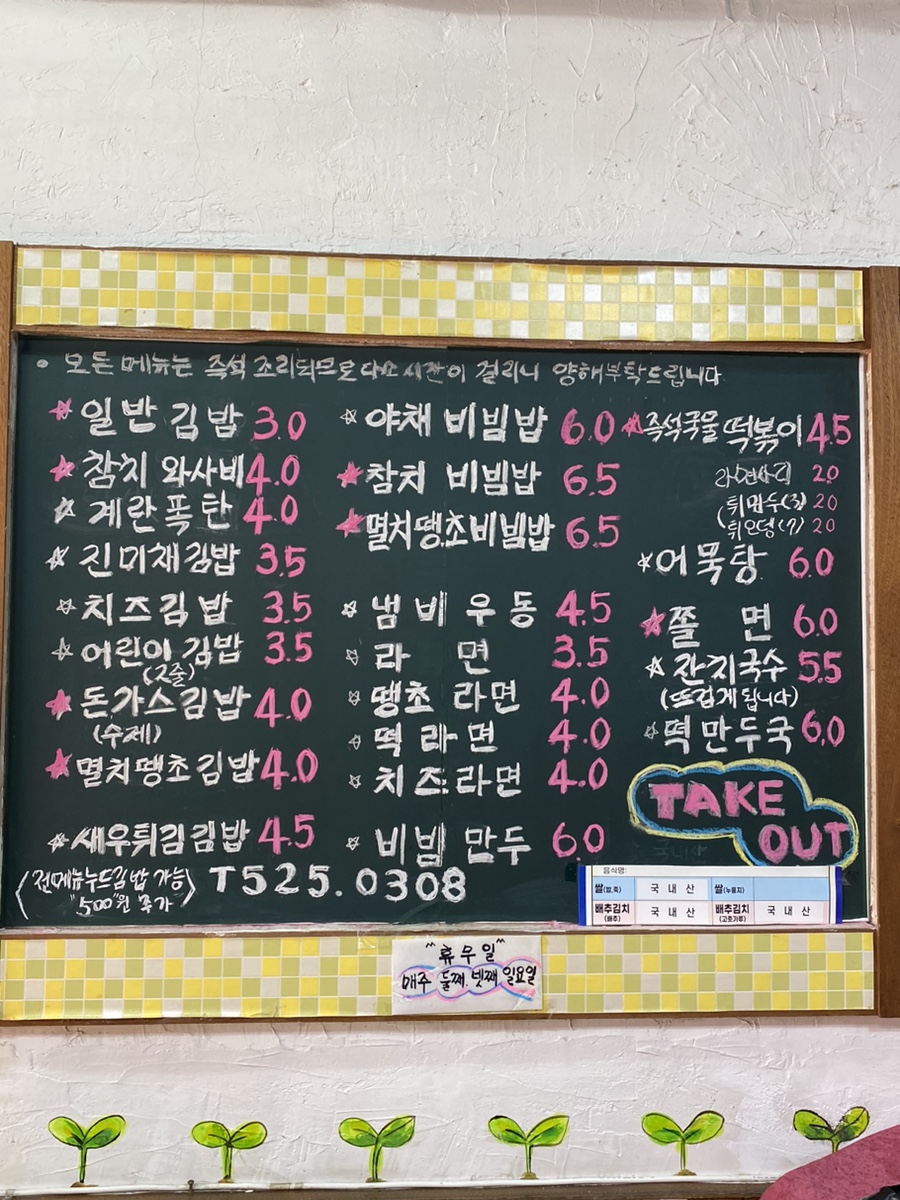 • 모든 메뉴는 즉석 조리되므로 다소 시간이 걸리니 양해부탁드립니다
☆ 일반김밥 3.0
☆ 참치 와사비 4.0
☆ 계란폭탄 4.0
☆ 진미채김밥 3.5
☆ 치즈김밥 3.5
☆ 어린이김밥 3.5
(2줄)
☆ 돈가스김밥 4.0
(수제)
☆ 멸치땡초김밥 4.0
☆ 새우튀김김밥 4.5
〈전메뉴누드김밥 가능
"500"원 추가〉
T525.0308
☆ 야채 비빔밥 6.0
☆ 참치 비빔밥 6.5
☆ 멸치땡초비빔밥 6.5
☆ 냄비우동 4.5
☆ 라면 3.5
☆ 땡초 라면 4.0
☆ 떡라면 4.0
☆ 치즈라면 4.0
☆ 비빔 만두 6.0
☆ 즉석국물 떡볶이 4.5
라면사리 2.0
튀만두(3) 2.0
튀오뎅(7) 2.0
☆ 어묵탕 6.0
☆ 쫄면 6.0
☆ 잔치국수 5.5
(뜨겁게 됩니다)
☆ 떡만두국 6.0
TAKE
OUT
음식명:
쌀(밥,죽) 국내산 쌀(누룽지)
배추김치(배추) 국내산 배추김치(고춧가루) 국내산
"휴무일"
매주 둘째. 넷째 일요일